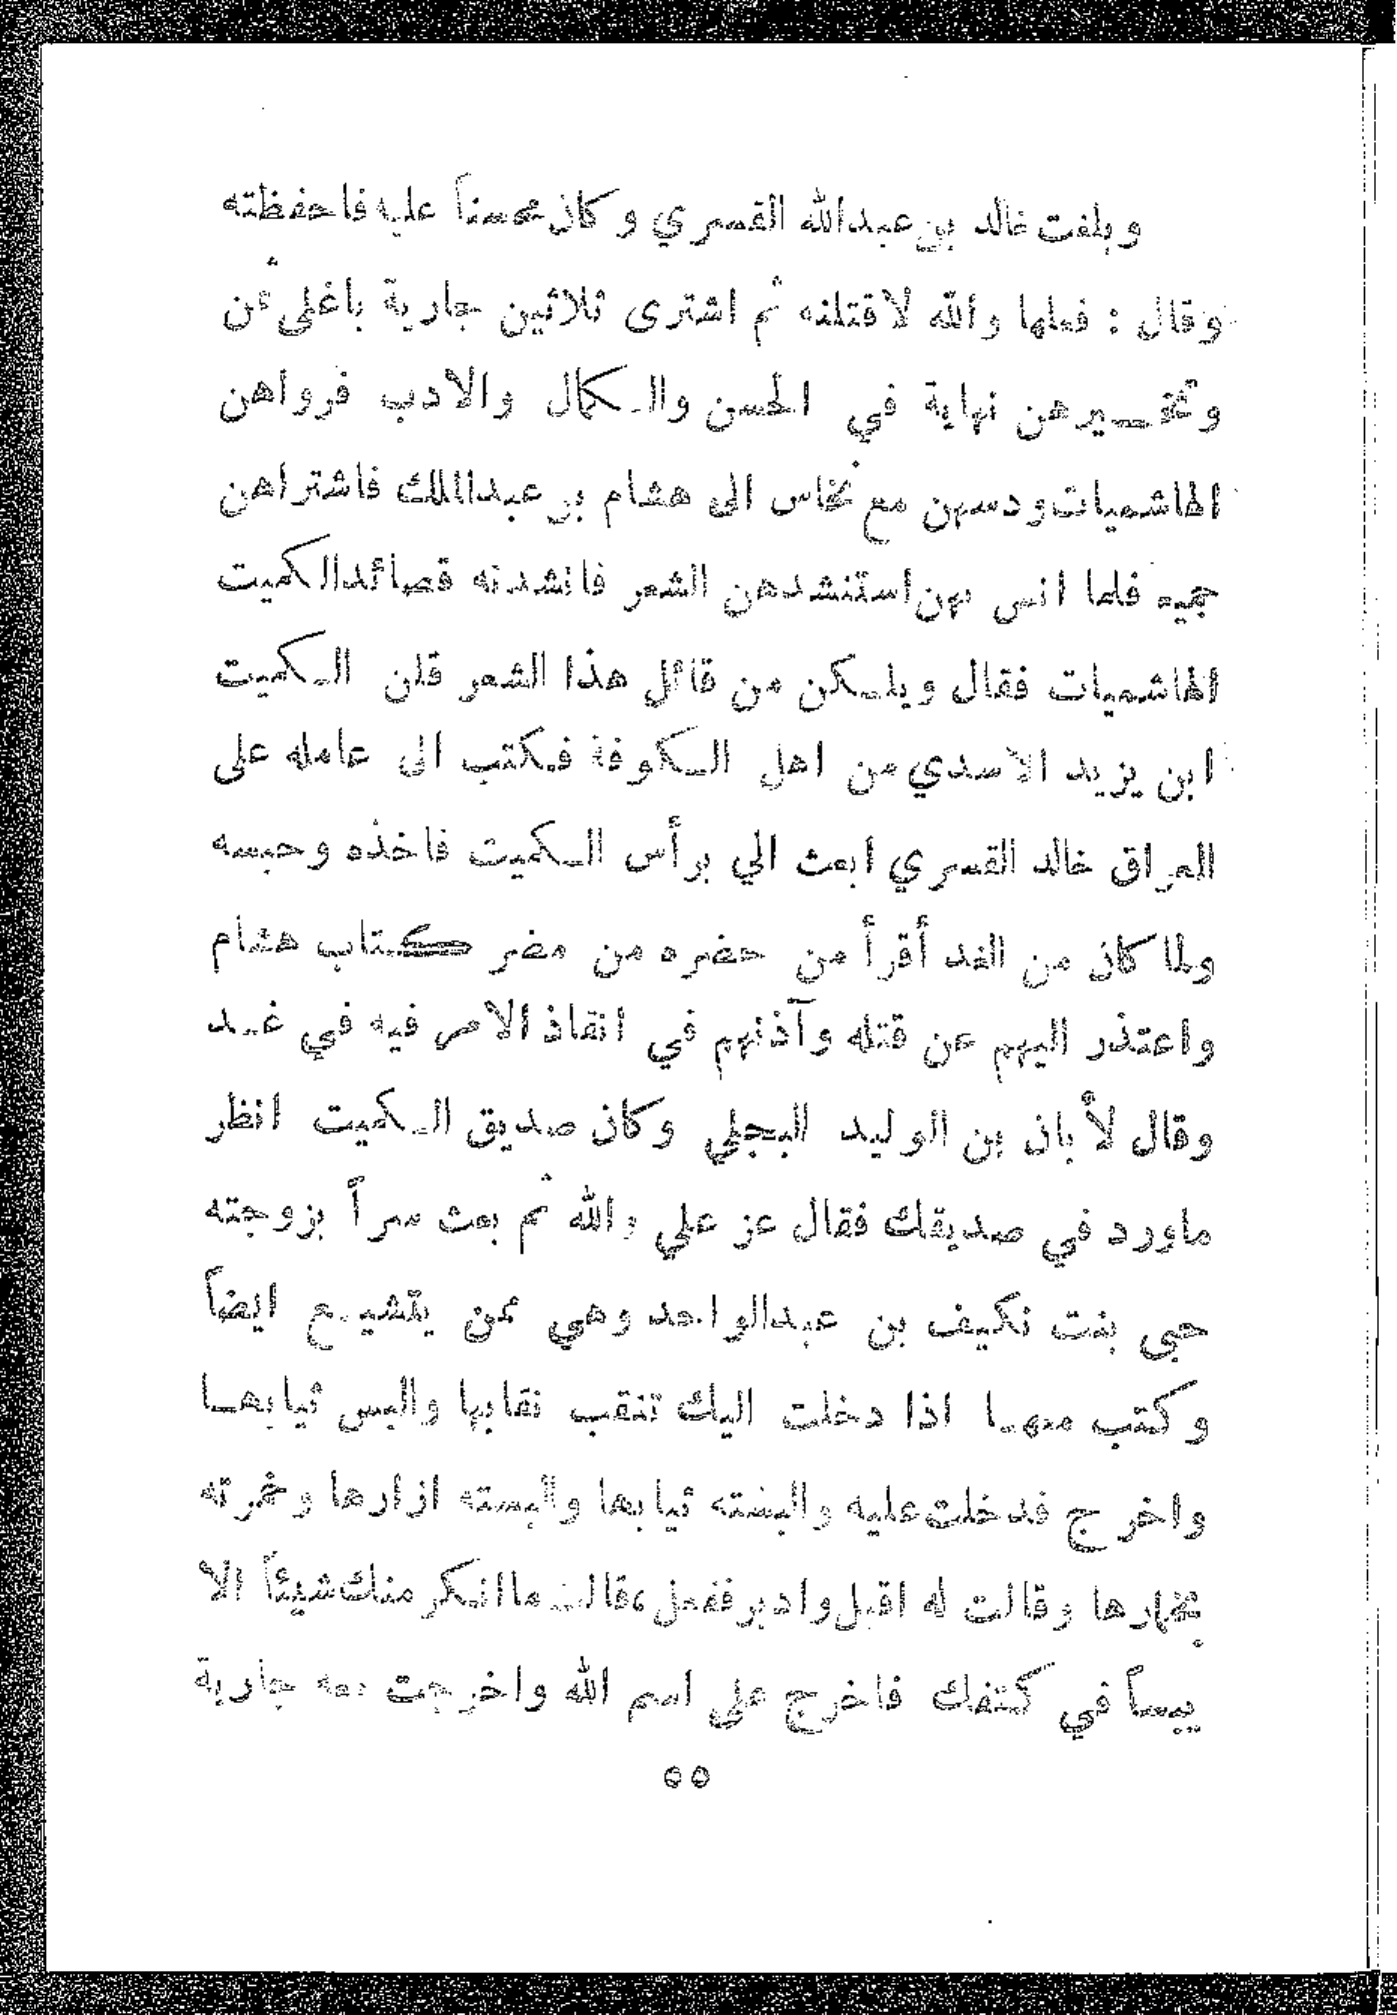 وبلغت خالد بن عبدالله القسري وكان محسناً عليه فاحفظته
وقال : فعلها والله لاقتلنه ثم اشترى ثلاثين جارية باغلى ثمن
وتخيرهن نهاية في الحسن والكمال والادب فرواهن
الهاشميات ودسهن مع نخاس الى هشام بن عبدالملك فاشتراهن
جميعه فلما انس بهن استنشدهن الشعر فانشدنه قصائد الكميت
الهاشميات فقال ويلكن من قائل هذا الشعر قلن الكميت
ابن يزيد الاسدي من اهل الكوفة فكتب الى عامله على
العراق خالد القسري ابعث الي برأس الكميت فاخذه وحبسه
ولما كان من الغد أقرأ من حضره من مضر كتاب هشام
واعتذر اليهم عن قتله وآذنهم في انقاذ الامر فيه في غد
وقال لأبان بن الوليد البجلي وكان صديق الكميت انظر
ماورد في صديقك فقال عز علي والله ثم بعث سراً بزوجته
حبى بنت نكيف بن عبدالواحد وهي ممن يتشيع ايضاً
وكتب معها اذا دخلت اليك تنقب نقابها والبس ثيابها
واخرج فدخلت عليه والبسته ثيابها والبسته ازارها وخمرته
بخمارها وقالت له اقبل وادبر ففعل ، قالت ما انكر منك شيئاً الا
يبساً في كتفك فاخرج على اسم الله واخرجت معه جارية
٥٥